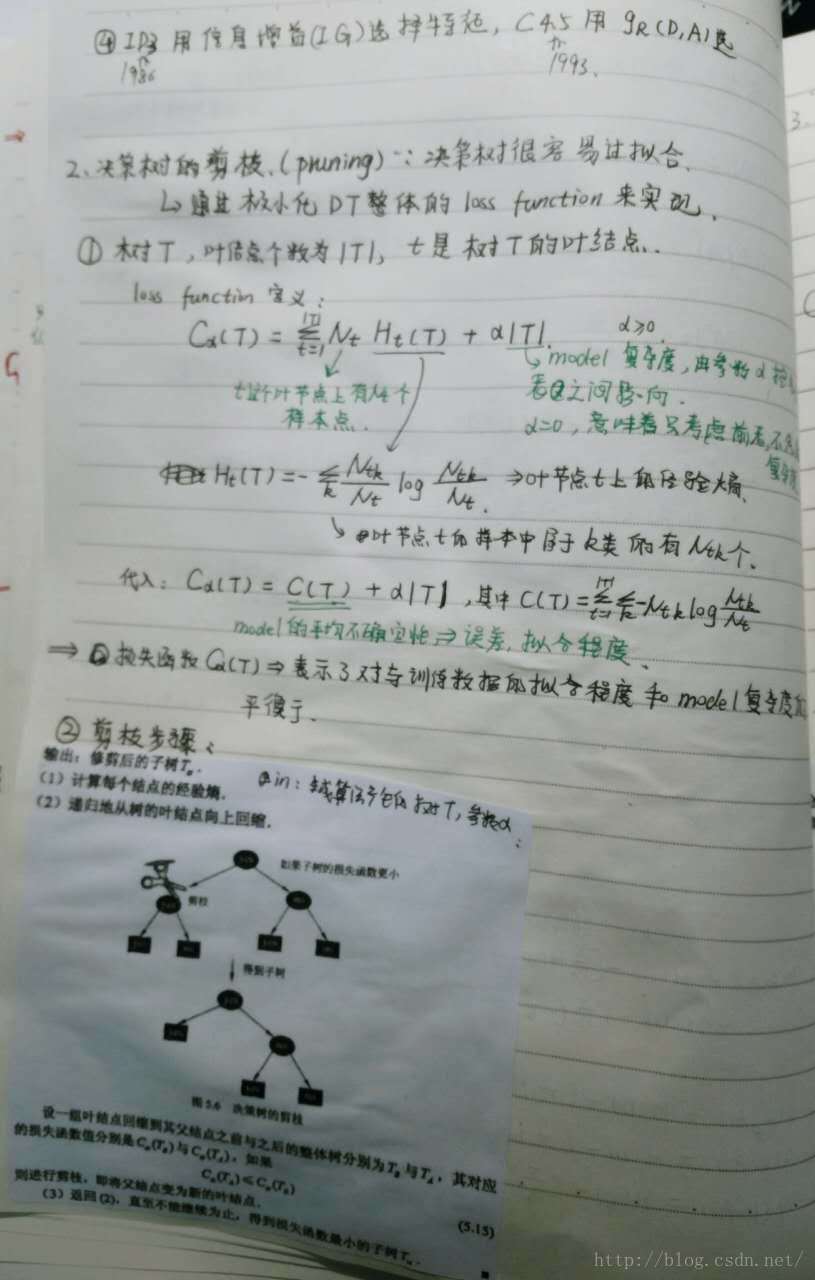 ④ ID3 用信息增益(IG)选择特征, C4.5 用 gR(D,A)选
1986
1993.
2、决策树的剪枝.(pruning) ∵ 决策树很容易过拟合.
↳ 通过极小化 DT 整体的 loss function 来实现.
① 树T, 叶结点个数为|T|, t是树T的叶结点.
loss function 定义:
Cα(T) = Σ_{t=1}^{|T|} Nt Ht(T) + α|T|. α≥0.
model 复杂度, 由参数α
t这个叶节点上有Nt个
样本点.
者之间影响.
α=0, 意味着只考虑前者,不
复杂度
Ht(T) = -Σ_k Ntk/Nt log Ntk/Nt. ⇒叶节点t上的经验熵.
↘叶节点t的样本中属于k类的有Ntk个.
代入: Cα(T) = C(T) + α|T|, 其中 C(T) = Σ_{t=1}^{|T|} Σ_k -Ntk log Ntk/Nt
model的平均不确定性,⇒误差,拟合程度.
⇒ 损失函数Cα(T) ⇒ 表示了对与训练数据的拟合程度和model复杂度的
平衡于.
② 剪枝步骤:
输出:修剪后的子树Tα.
in: 生成算法产生的树T,参数α;
(1)计算每个结点的经验熵.
(2)递归地从树的叶结点向上回缩.
如果子树的损失函数更小
剪枝
得到子树
图5.6 决策树的剪枝
设一组叶结点回缩到其父结点之前与之后的整体树分别为TB与TA,其对应
的损失函数值分别是Cα(TB)与Cα(TA),如果
Cα(TA)≤Cα(TB)
(5.15)
则进行剪枝,即将父结点变为新的叶结点.
(3)返回(2),直至不能继续为止,得到损失函数最小的子树Tα.
http://blog.csdn.net/